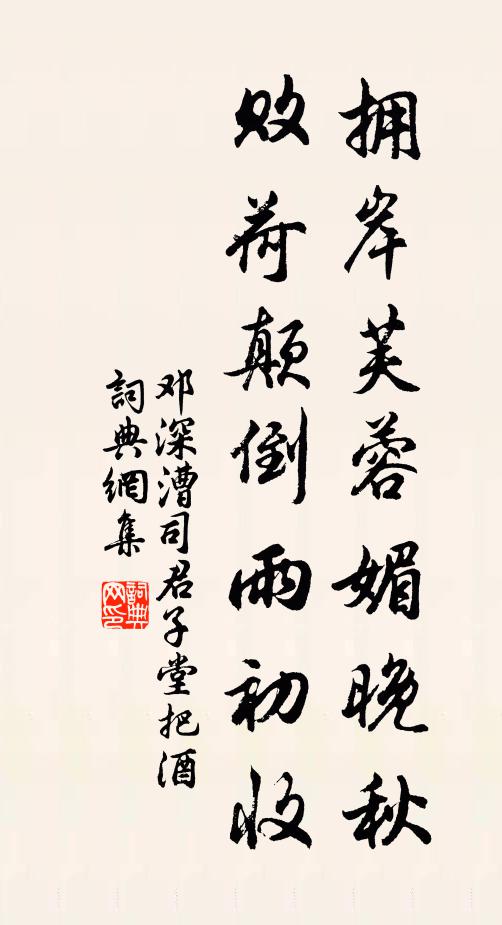 拥岸芙蓉媚晚秋
败荷颠倒雨初收
邓深漕司君子堂把酒
詞典網集
詞典
网印